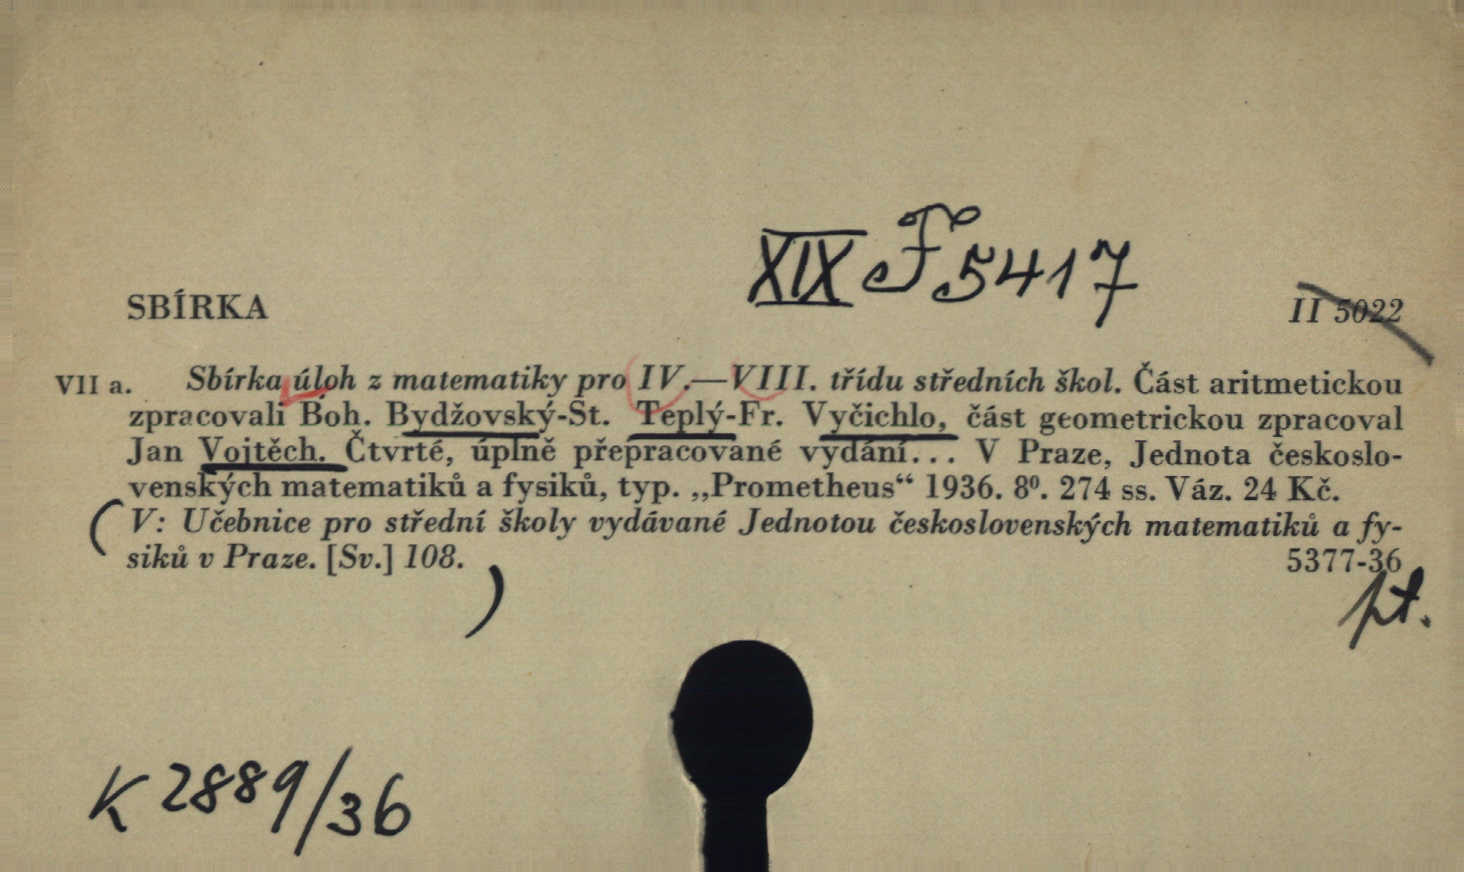 XIX F 5417
SBÍRKA II 5022
VII a. Sbírka úloh z matematiky pro IV.—VIII. třídu středních škol. Část aritmetickou
zpracovali Boh. Bydžovský-St. Teplý-Fr. Vyčichlo, část geometrickou zpracoval
Jan Vojtěch. Čtvrté, úplně přepracované vydání... V Praze, Jednota českoslo-
venských matematiků a fysiků, typ. „Prometheus“ 1936. 8⁰. 274 ss. Váz. 24 Kč.
(V: Učebnice pro střední školy vydávané Jednotou československých matematiků a fy-
siků v Praze. [Sv.] 108.) 5377-36
pt.
K 2889/36